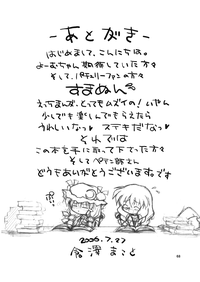 -あとがき-
はじめまして、こんにちは。
よーむちゃん期待していた方々
そして、パチュリーファンの方々
すまぬん
えっちまんが、とってもムズイの！いやん
少しでも楽しんでもらえたら
うれしいなっ♥ ステキだなっ♥
それでは
この本を手に取って下さった方々
そして
どうもありがとうございますです
2006.7.27